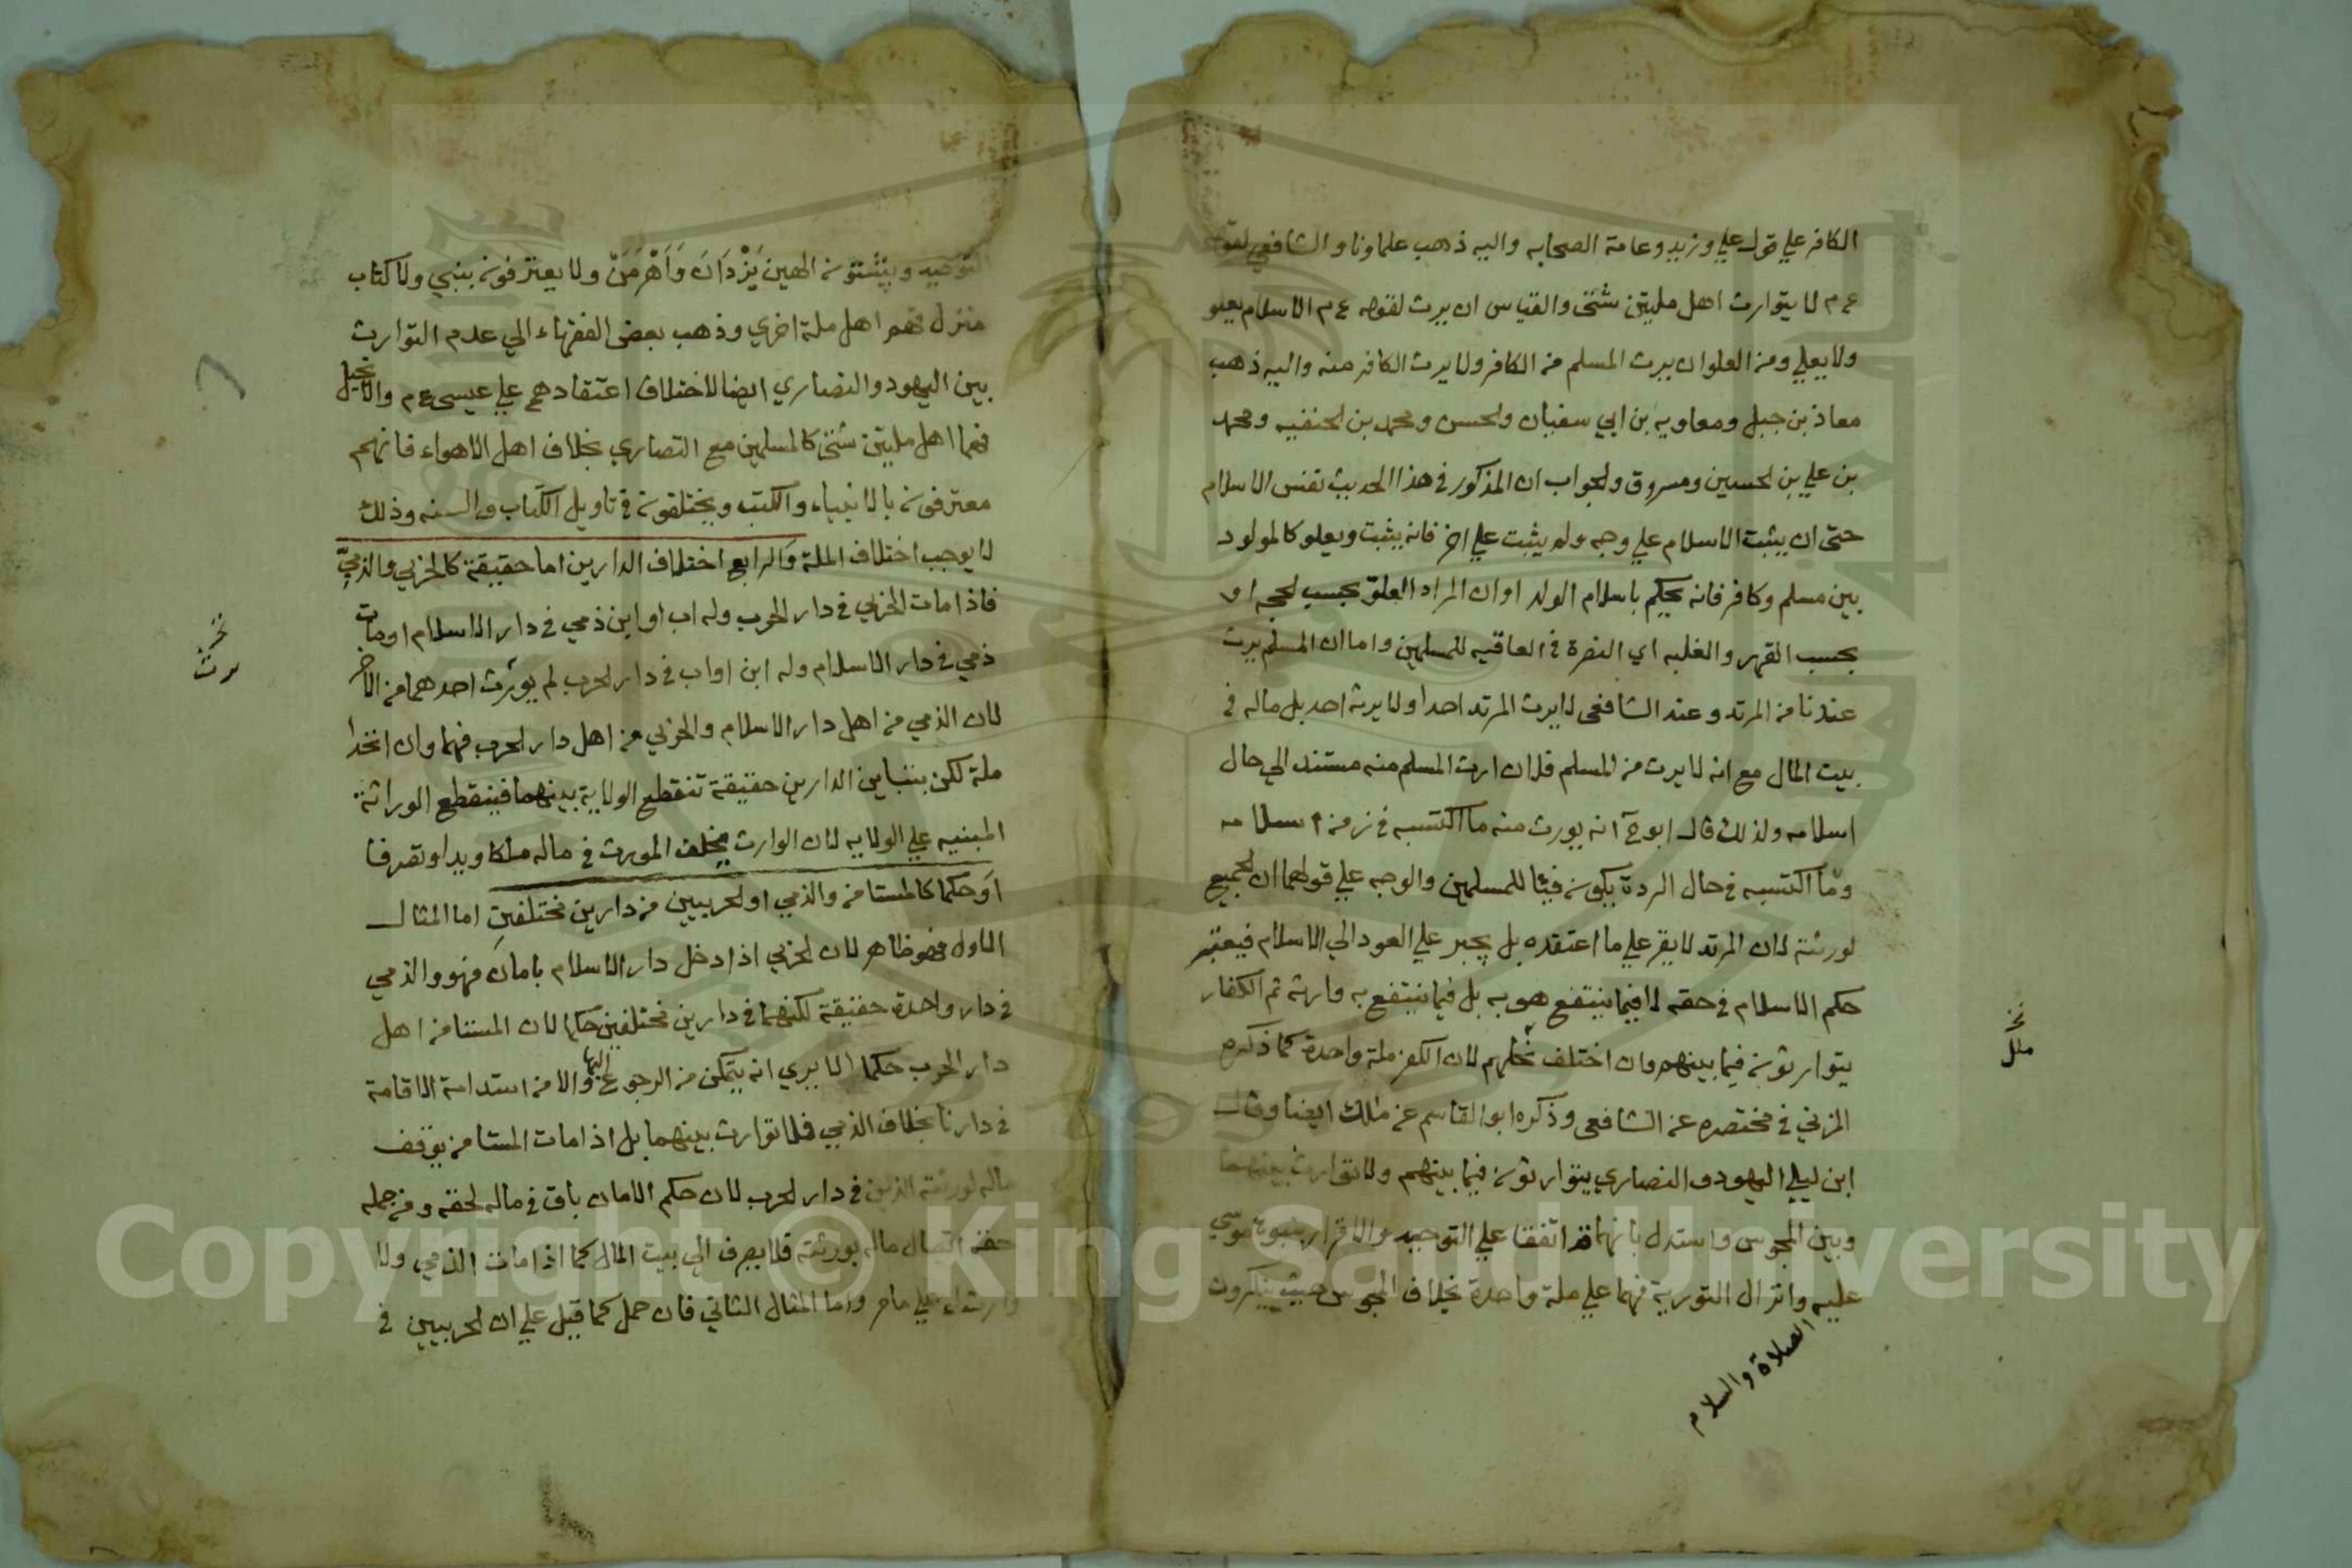 الكافر علي قول علي وزيد وعامة الصحابه واليه ذهب علماونا والشافعي لقوله
ع م لا يتوارث اهل ملتين شتى والقياس ان يرث لقوله ع م الاسلام يعلو
ولا يعلي ومن العلو ان يرث المسلم من الكافر ولا يرث الكافر منه واليه ذهب
معاذ بن جبل ومعاويه بن ابي سفيان والحسن ومحمد بن الحنفيه ومحمد
بن علي بن الحسين ومسروق والجواب ان المذكور في هذا الحديث نفس الاسلام
حتى ان يثبت الاسلام علي وجه ولم يثبت علي اخر فانه يثبت ويعلو كالمولود
بين مسلم وكافر فانه يحكم باسلام الولد او ان المراد العلوّ بحسب الحجه او
بحسب القهر والغلبه اي النصرة في العاقبه للمسلمين واما ان المسلم يرث
عندنا من المرتد وعند الشافعى لا يرث المرتد احدا ولا يرثه احد بل ماله في
بيت المال مع انه لا يرث من المسلم فلان ارث المسلم منه مستند الي حال
اسلامه ولذلك قال ابو ح انه يورث منه ما اكتسبه في زمن اسلامه
وما اكتسبه في حال الردة يكون فيئا للمسلمين والوجه علي قولهما ان الجميع
لورثته لان المرتد لا يقر علي ما اعتقده بل يجبر علي العود الي الاسلام فيعتبر
حكم الاسلام في حقه لا فيما ينتفع هو به بل فيما ينتفع به وارثه ثم الكفار
يتوارثون فيما بينهم وان اختلف نحلهم لان الكفر ملة واحدة كما ذكره
المزني في مختصره عن الشافعى وذكره ابو القاسم عن مالك ايضا وقال
ابن ليلي اليهود والنصاري يتوارثون فيما بينهم ولا توارث بينهما
وبين المجوس واستدل بانهما قد اتفقا علي التوحيد والاقرار بنبوة موسي
عليه وانزال التورية فهما علي ملة واحدة بخلاف المجوس حيث ينكرون
الصلاة والسلام
نخ
ملل
التوحيد ويثبتون الهين يَزْدَانَ وَاَهْرَمَنْ ولا يعترفون بنبي ولا كتاب
منزل فهم اهل ملة اخري وذهب بعض الفقهاء الي عدم التوارث
بين اليهود والنصاري ايضا لاختلاف اعتقادهم علي عيسى ع م والانجيل
فهما اهل ملتين شتى كالمسلمين مع النصاري بخلاف اهل الاهواء فانهم
معترفون بالانبياء والكتب ويختلفون في تاويل الكتاب والسنه وذلك
لا يوجب اختلاف الملة والرابع اختلاف الدارين اما حقيقة كالحربي والذميّ
فاذا مات الحربي في دار الحرب وله اب او ابن ذمي في دار الاسلام او مات
ذمي في دار الاسلام وله ابن او اب في دار الحرب لم يورث احدهما من الاخر
لان الذمي من اهل دار الاسلام والحربي من اهل دار الحرب فهما وان اتحدا
ملة لكن بتباين الدارين حقيقة تنقطع الولاية بينهما فينقطع الوراثة
المبنيه علي الولايه لان الوارث يخلف المورث في ماله ملكا ويدا وتصرفا
او حكما كالمستامن والذمي او الحربيين من دارين مختلفين اما المثال
الاول فهو ظاهر لان الحربي اذا دخل دار الاسلام بامان فهو والذمي
في دار واحدة حقيقة لكنهما في دارين مختلفين حكما لان المستامن اهل
دار الحرب حكما الا يري انه يتمكن من الرجوع اليها والا من استدامة الاقامة
في دارنا بخلاف الذمي فلا توارث بينهما بل اذا مات المستامن يوقف
ماله لورثته الذين في دار الحرب لان حكم الامان باق في ماله لحقه ومن جمله
حقه اتصال ماله بورثته فلا يصرف الي بيت المال كما اذا مات الذمي ولا
وارث له علي ما مر واما المثال الثاني فان حمل كما قيل علي ان الحربيين في
نخ
يرث
Copyright © King Saud University